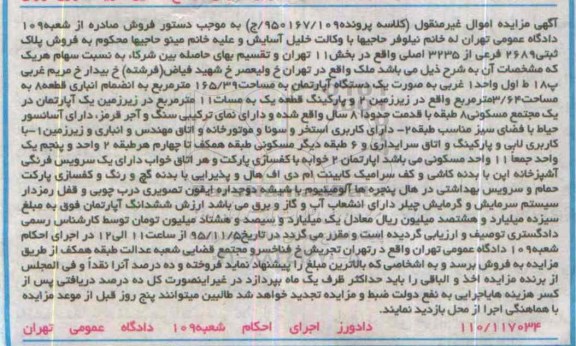 آگهی مزایده اموال غیرمنقول (کلاسه پرونده ۹۵۰۱۶۷/۱۰۹ج) به موجب دستور فروش صادره از شعبه۱۰۹
دادگاه عمومی تهران له خانم نیلوفر حاجیها با وکالت خلیل آسایش و علیه خانم مینو حاجیها محکوم به فروش پلاک
ثبتی۲۶۸۹ فرعی از ۳۲۳۵ اصلی واقع در بخش۱۱ تهران و تقسیم بهای حاصله بین شرکاء به نسبت سهام هریک
که مشخصات آن به شرح ذیل می باشد ملک واقع در تهران خ ولیعصر خ شهید فیاض(فرشته) خ بیدار خ مریم غربی
پ۱۸ ط اول واحد۱ غربی به صورت یک دستگاه آپارتمان به مساحت۱۶۵/۳۹ مترمربع به انضمام انباری قطعه۸ به
مساحت۳/۶۴مترمربع واقع در زیرزمین۲ و پارکینگ قطعه یک به مساحت۱۱ مترمربع در زیرزمین یک آپارتمان در
یک مجتمع مسکونی۸ طبقه با قدمت حدودا ۸ سال واقع شده و دارای نمای ترکیبی سنگ و آجر قرمز، دارای آسانسور
حیاط با فضای سبز مناسب طبقه۲- دارای کاربری استخر و سونا و موتورخانه و اتاق مهندس و انباری و زیرزمین۱-با
کاربری لابی و پارکینگ و اتاق سرایداری و ۶ طبقه دیگر مسکونی طبقه همکف تا چهارم هرطبقه ۲ واحد و پنجم یک
واحد جمعاً ۱۱ واحد مسکونی می باشد آپارتمان ۲ خوابه با کفسازی پارکت و هر اتاق خواب دارای یک سرویس فرنگی
آشپزخانه اپن با بدنه کاشی و کف سرامیک کابینت ام دی اف هال و پذیرایی با بدنه گچ و رنگ و کفسازی پارکت
حمام و سرویس بهداشتی در هال پنجره ها آلومینیوم با شیشه دوجداره آیفون تصویری درب چوبی و قفل رمزدار
سیستم سرمایش و گرمایش چیلر دارای انشعاب آب و گاز و برق می باشد ارزش ششدانگ آپارتمان فوق به مبلغ
سیزده میلیارد و هشتصد میلیون ریال معادل یک میلیارد و سیصد و هشتاد میلیون تومان توسط کارشناس رسمی
دادگستری توصیف و ارزیابی گردیده است و مقرر می گردد در تاریخ۹۵/۱۱/۵ از ساعت۱۱ الی۱۲ در اجرای احکام
شعبه۱۰۹ دادگاه عمومی تهران واقع در تهران تجریش خ فناخسرو مجتمع قضایی شعبه عدالت طبقه همکف از طریق
مزایده به فروش برسد و به اشخاصی که بالاترین مبلغ را پیشنهاد نماید فروخته و ده درصد آنرا نقداً و فی المجلس
از برنده مزایده اخذ و الباقی را باید حداکثر ظرف یک ماه بپردازد در غیراینصورت کل ده درصد دریافتی پس از
کسر هزینه هایاجرایی به نفع دولت ضبط و مزایده تجدید خواهد شد طالبین میتوانند پنج روز قبل از موعد مزایده
با هماهنگی اجرا از محل بازدید نمایند.
۱۱۰/۱۱۷۰۳۴ دادورز اجرای احکام شعبه۱۰۹ دادگاه عمومی تهران